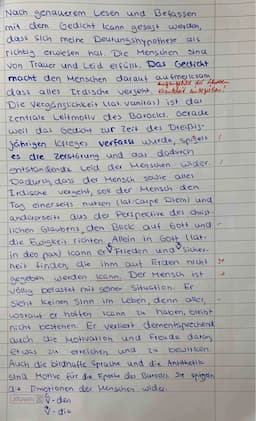 Nach genauerem Lesen und Befassen
mit dem Gedicht kann gesagt werden,
dass sich meine Deutungshypothese als
richtig erwiesen hat. Die Menschen sind
von Trauer und Leid erfüllt. Das Gedicht
macht den Menschen darauf aufmerksam
dass alles Irdische vergeht.
Die Vergänglichkeit (lat. vanitas) ist das
zentrale Leitmotiv des Barocks. Gerade
weil das Gedicht zur Zeit des Dreißig-
jährigen Krieges verfasst wurde, spiegelt
es die Zerstörung und das dadurch
entstandende Leid der Menschen wider.
Dadurch, dass der Mensch sowie alles
Irdische vergeht, soll der Mensch den
Tag einerseits nutzen (lat. carpe Diem) und
andererseits aus der Perspektive des christ-
lichen Glaubens, den Blick auf Gott und
die Ewigkeit richten. Allein in Gott (lat.
in deo pax) kann er Frieden und Sicher-
heit finden, die ihm auf Erden nicht
gegeben werden kann. Der Mensch ist
völlig belastet mit seiner Situation. Er
sieht keinen Sinn im Leben, denn alles,
worauf er hoffen kann zu haben, bleibt
nicht bestehen. Er verliert dementsprechend
auch die Motivation und Freude daran,
etwas zu erreichen und zu bewirken.
Auch die bildhafte Sprache und die Antithetik
sind Motive für die Epoche des Barock. Sie spiegeln
die Emotionen der Menschen wider.
- den
- die